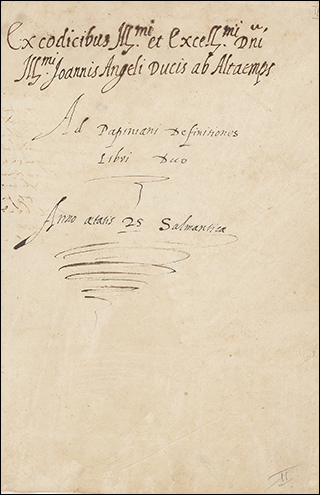 Ex codicibus Ill.mi et Excell.mi Dñi
Ill.mi Joannis Angeli Ducis ab Altaemps
Ad Papiniani Definitiones
Libri Duo
Anno ætatis 25 Salmanticæ
II